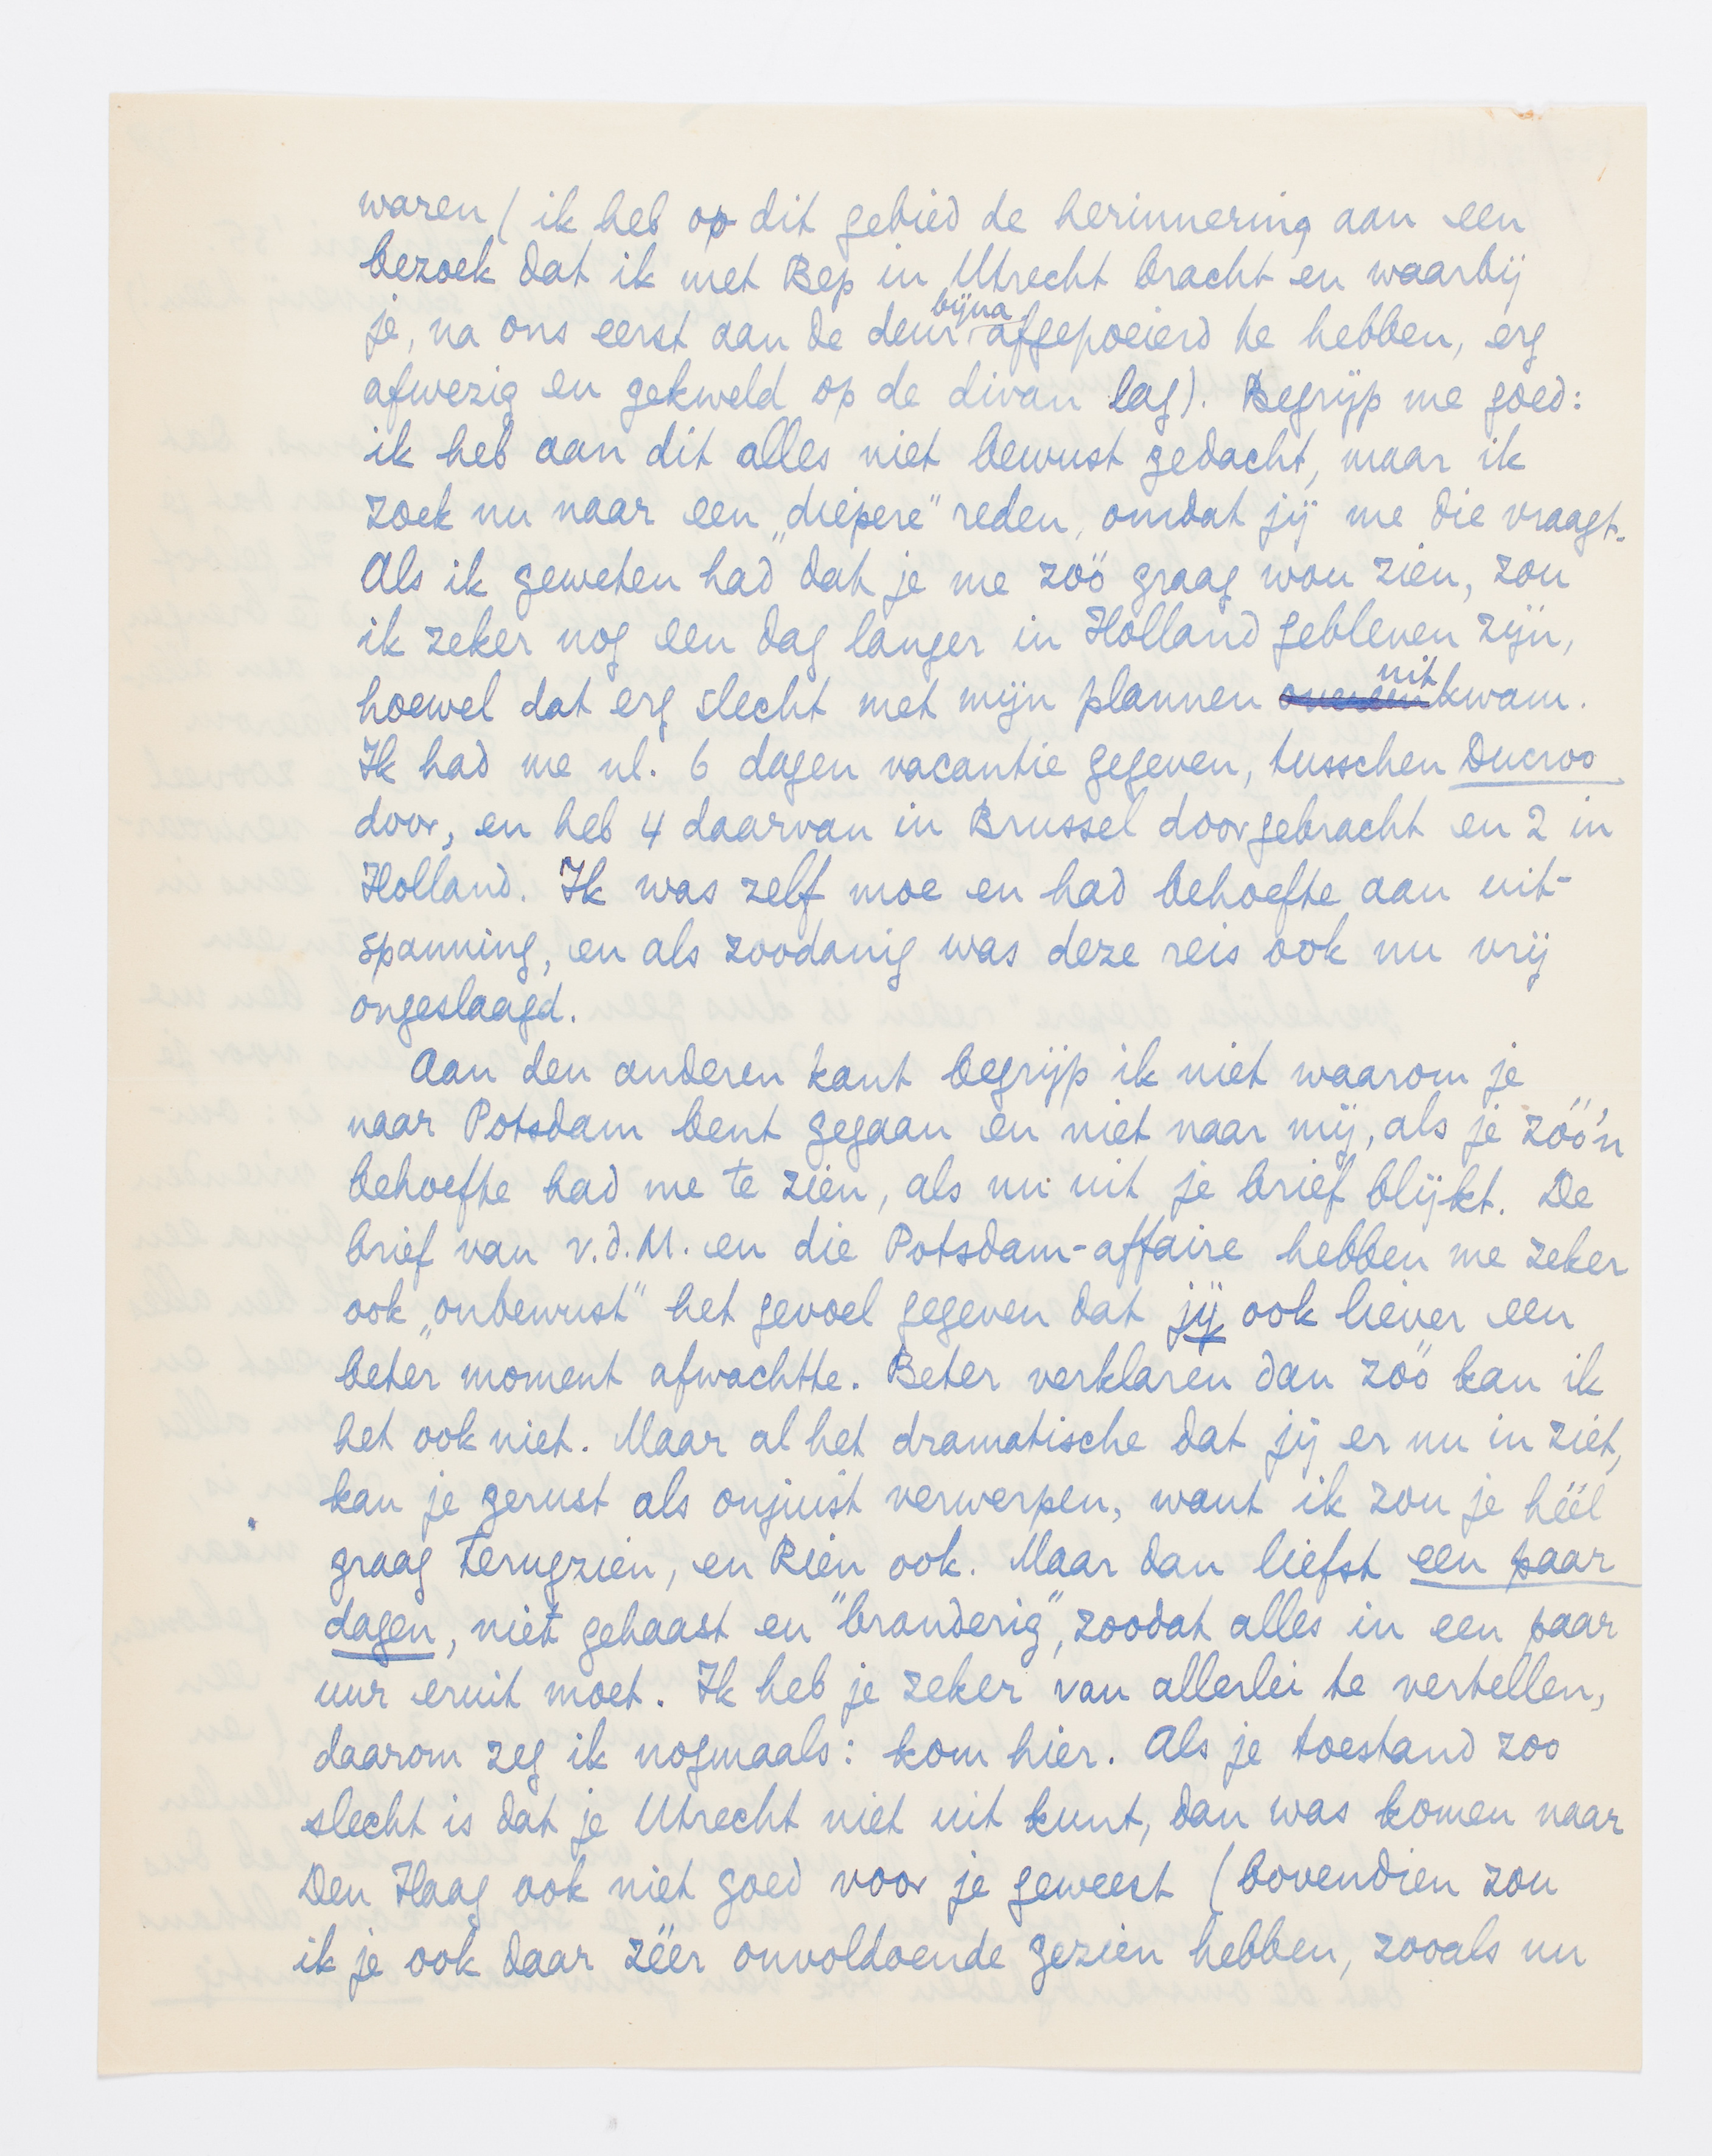 waren (ik heb op dit gebied de herinnering aan een
bezoek dat ik met Bep in Utrecht bracht en waarbij
je, na ons eerst aan de deur bijna afgepoeierd te hebben, erg
afwezig en gekweld op de divan lag). Begrijp me goed:
ik heb aan dit alles niet bewust gedacht, maar ik
zoek nu naar een „diepere" reden, omdat jij me die vraagt.
Als ik geweten had dat je me zóó graag wou zien, zou
ik zeker nog een dag langer in Holland gebleven zijn,
hoewel dat erg slecht met mijn plannen overeen uitkwam.
Ik had me nl. 6 dagen vacantie gegeven, tusschen Ducroo
door, en heb 4 daarvan in Brussel doorgebracht en 2 in
Holland. Ik was zelf moe en had behoefte aan uit-
spanning, en als zoodanig was deze reis ook nu vrij
ongeslaagd.
Aan den anderen kant begrijp ik niet waarom je
naar Potsdam bent gegaan en niet naar mij, als je zóó'n
behoefte had me te zien, als nu uit je brief blijkt. De
brief van v.d.M. en die Potsdam-affaire hebben me zeker
ook „onbewust" het gevoel gegeven dat jij ook liever een
beter moment afwachtte. Beter verklaren dan zóó kan ik
het ook niet. Maar al het dramatische dat jij er nu in ziet,
kan je gerust als onjuist verwerpen, want ik zou je héél
graag terugzien, en Rien ook. Maar dan liefst een paar
dagen, niet gehaast en "branderig", zoodat alles in een paar
uur eruit moet. Ik heb je zeker van allerlei te vertellen,
daarom zeg ik nogmaals: kom hier. Als je toestand zoo
slecht is dat je Utrecht niet uit kunt, dan was komen naar
Den Haag ook niet goed voor je geweest (bovendien zou
ik je ook daar zéér onvoldoende gezien hebben, zooals nu